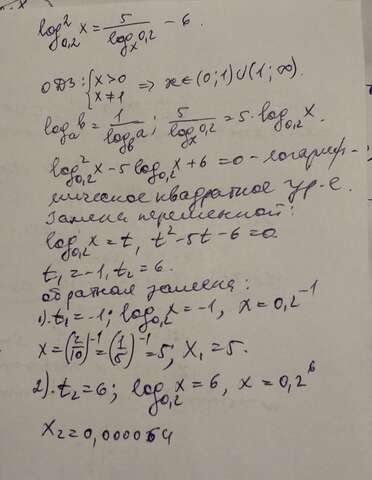 log²₀,₂ x = 5/logₓ0,2 − 6.
ОДЗ: {x>0 x≠1 ⇒ x∈(0;1)∪(1;∞).
logₐb = 1/log_b a; 5/logₓ0,2 = 5·log₀,₂x.
log²₀,₂x − 5log₀,₂x + 6 = 0 - логариф-
мическое квадратное ур-е.
Замена переменной:
log₀,₂x = t, t² − 5t − 6 = 0
t₁ = −1, t₂ = 6.
обратная замена:
1). t₁ = −1; log₀,₂x = −1, x = 0,2⁻¹
x = (2/10)⁻¹ = (1/5)⁻¹ = 5; x₁ = 5.
2). t₂ = 6; log₀,₂x = 6, x = 0,2⁶
x₂ = 0,000064